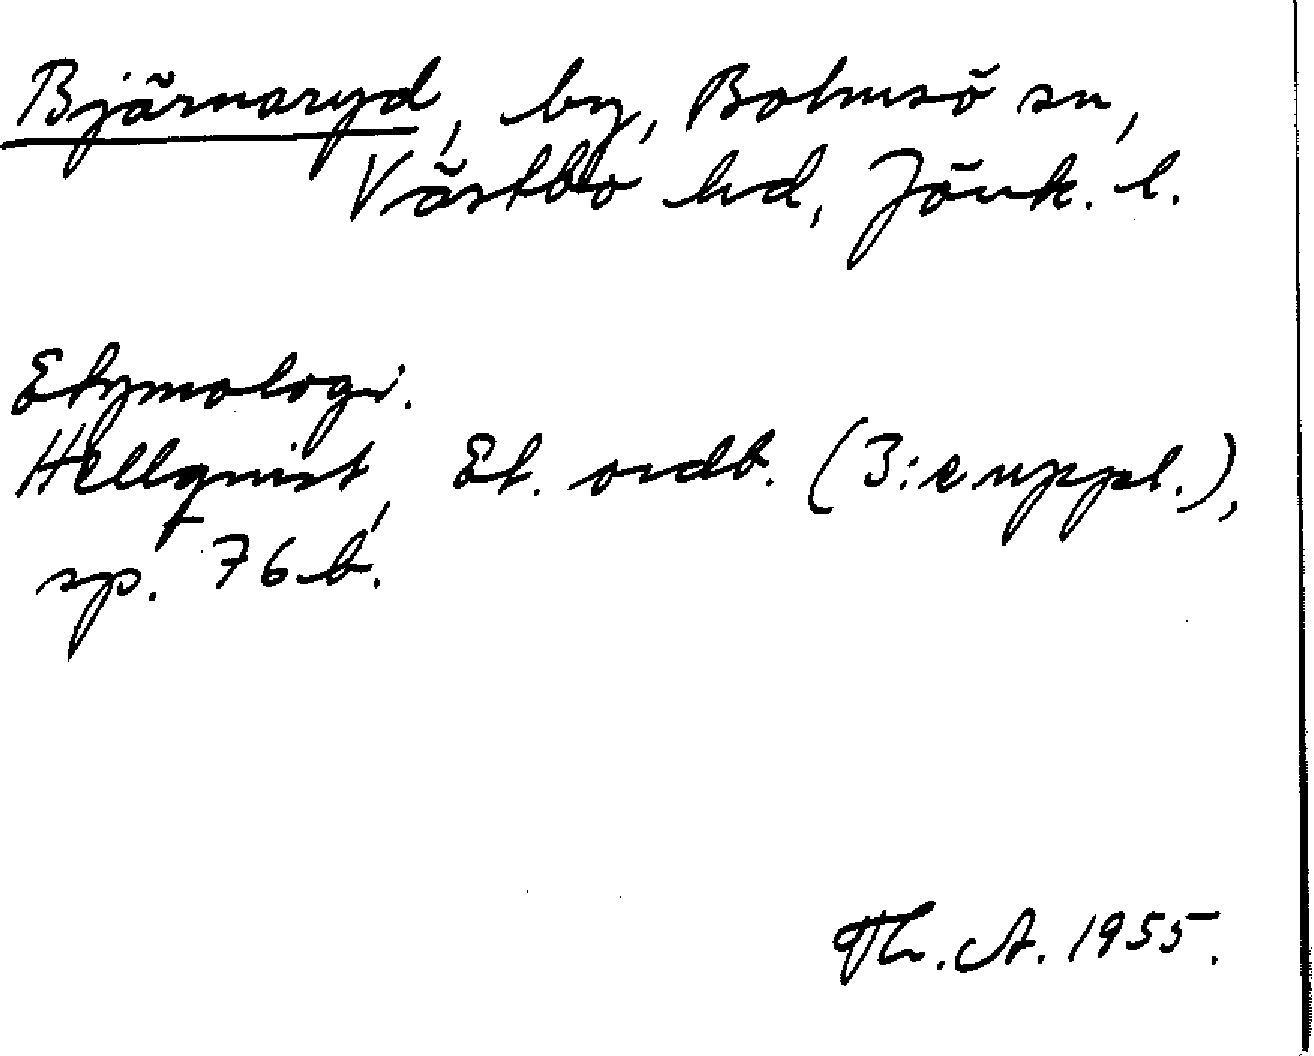 Bjärnaryd, by, Bolmsö sn,
Västbo hd, Jönk. l.
Etymologi.
Hellquist, Et. ordb. (3:e uppl.),
sp. 76 b.
Th. A. 1955.